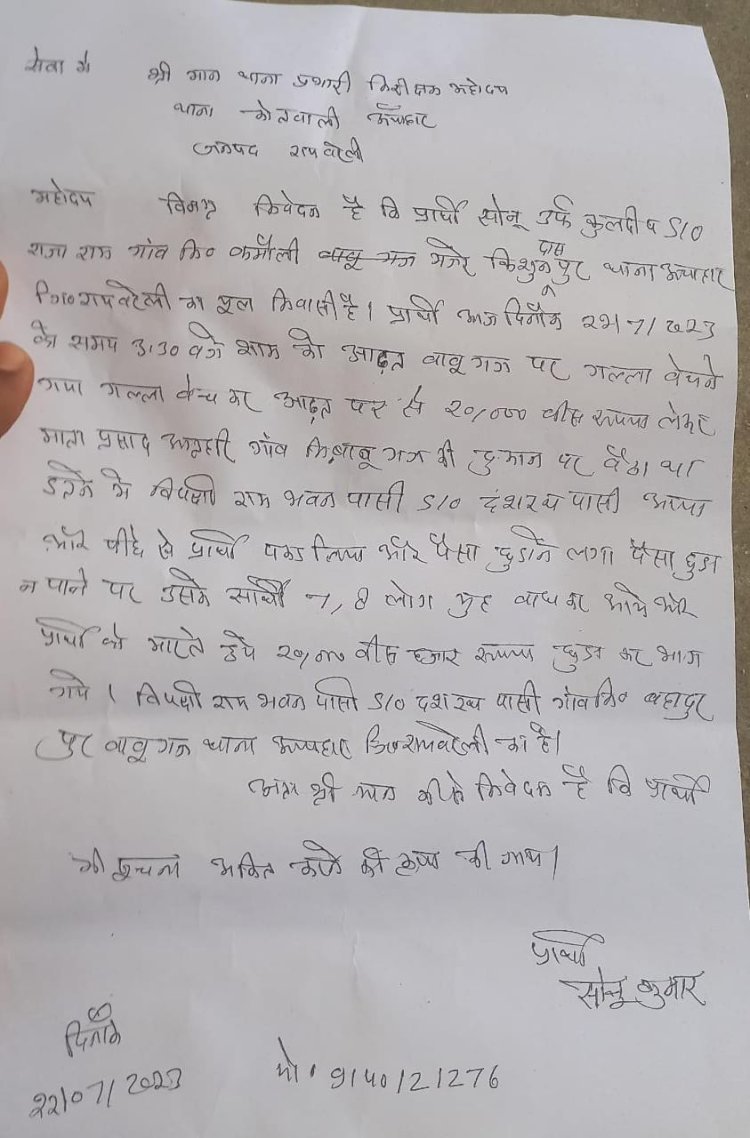 सेवा में
श्री मान थाना प्रभारी निरीक्षक महोदय
थाना कोतवाली ऊँचाहार
जनपद रायबरेली
महोदय विनम्र निवेदन है कि प्रार्थी सोनू उर्फ कुलदीप S/O
राजा राम गांव नि० कमौली मजरे किशुन दास पुर थाना ऊचाहार
जि० रायबरेली का मूल निवासी है। प्रार्थी आज दिनाँक 22/7/2023
को समय 3:30 बजे शाम को आढ़त बाबू गंज पर गल्ला बेचने
गया गल्ला बेच कर आढ़त पर से 20,000 बीस रूपया लेकर
माता प्रसाद अग्रहरी गाँव नि० बाबू गंज की दुकान पर बैठा था
इतने में विपक्षी राम भवन पासी S/O दशरथ पासी आया
और पीछे से प्रार्थी पकड़ लिया और पैसा छुडाने लगा पैसा छुडा
न पाने पर उसके साथी 7, 8 लोग मुह बाध कर आये और
प्रार्थी को मारते हुये 20,000 बीस हजार रूपया छुडा कर भाग
गये। विपक्षी राम भवन पासी S/O दशरथ पासी गाँव नि० बहादुर
पुर बाबू गंज थाना ऊचाहार जि० रायबरेली का है।
अतः श्री मान जी से निवेदन है कि प्रार्थी
की सूचना अंकित करने की कृपा की जाय।
प्रार्थी
सोनू कुमार
दिनाँक
22/07/2023
मो० 9140121276